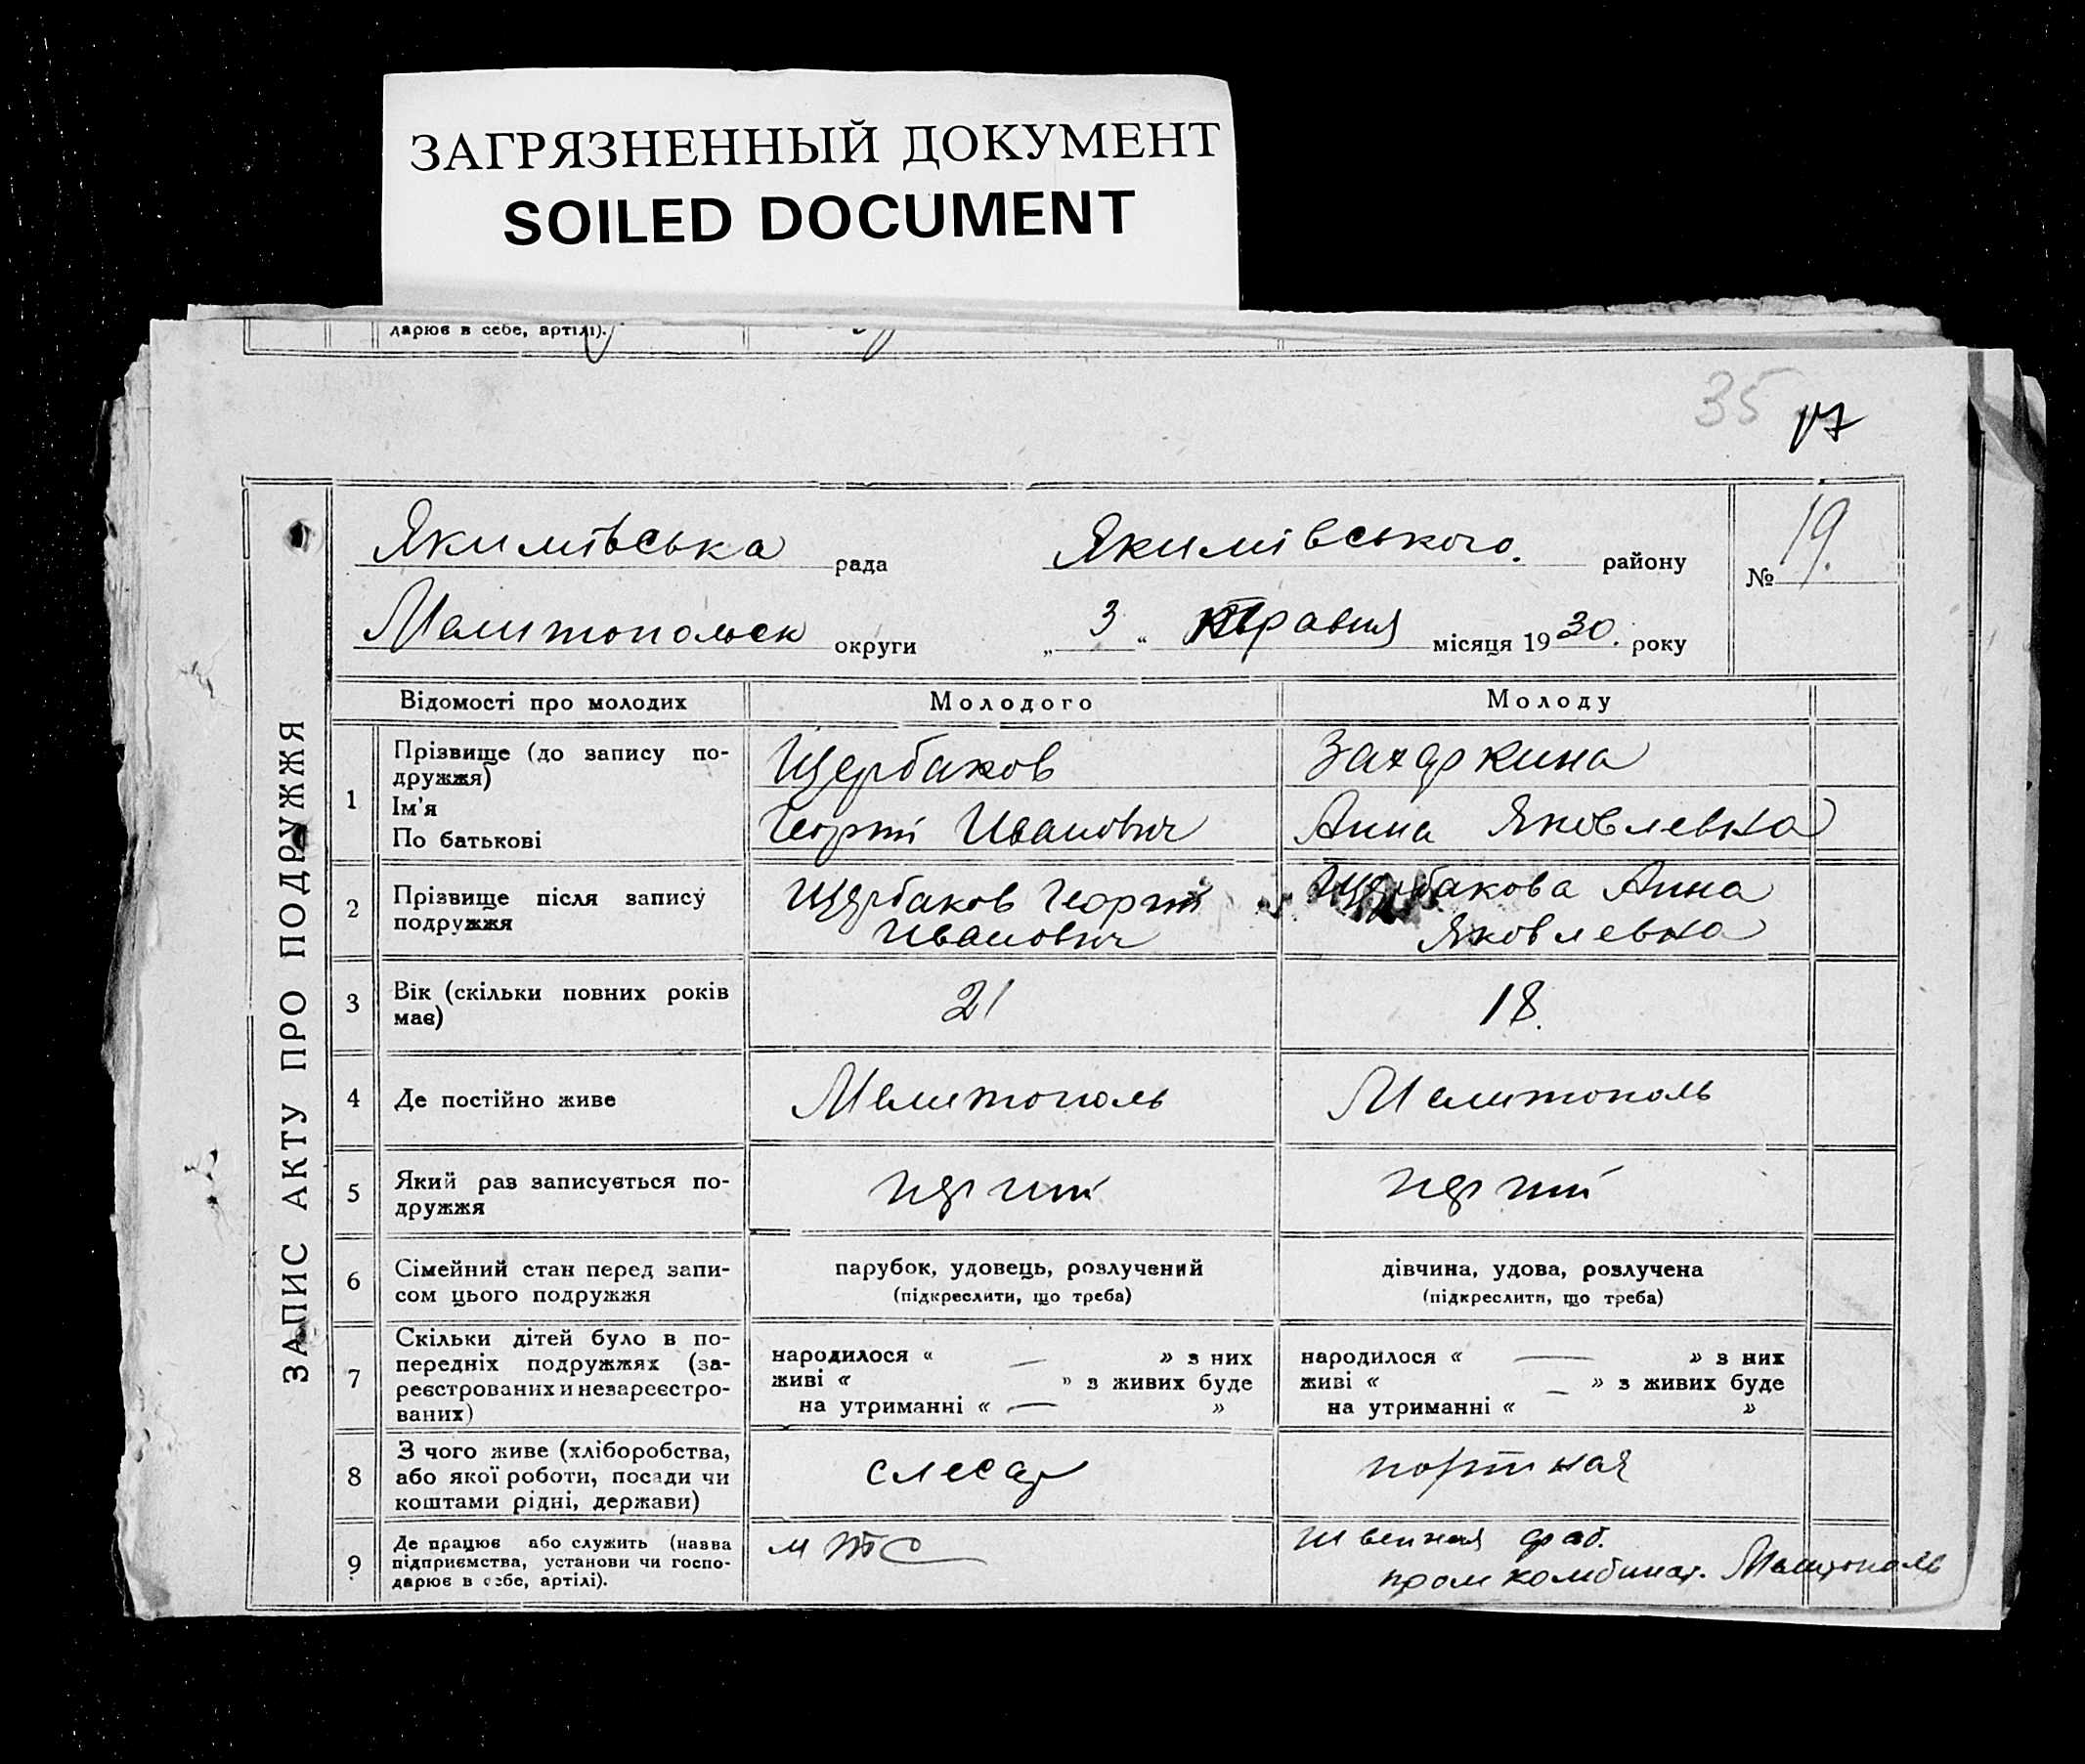 ЗАГРЯЗНЕННЫЙ ДОКУМЕНТ
SOILED DOCUMENT
дарює в себе, артілі).
35 17
ЗАПИС АКТУ ПРО ПОДРУЖЖЯ
Якимівська рада Якимівського. району № 19.
Мелитопольск округи „ 3 “ травня місяця 1930. року
Відомості про молодих Молодого Молоду
1 Прізвище (до запису по-
дружжя)
Ім'я
По батькові
Щербаков
Георгій Иванович
Захаркина
Анна Яковлевна
2 Прізвище після запису
подружжя
Щербаков Георгій
Иванович
Щербакова Анна
Яковлевна
3 Вік (скільки повних років
має)
21
18.
4 Де постійно живе Мелитополь Мелитополь
5 Який раз записується по-
дружжя
перший
перший
6 Сімейний стан перед запи-
сом цього подружжя
парубок, удовець, розлучений
(підкреслити, що треба)
дівчина, удова, розлучена
(підкреслити, що треба)
7 Скільки дітей було в по-
передніх подружжях (за-
реєстрованих и незареєстро-
ваних)
народилося « — » з них
живі « » з живих буде
на утриманні « — »
народилося « — » з них
живі « — » з живих буде
на утриманні « »
8 З чого живе (хліборобства,
або якої роботи, посади чи
коштами рідні, держави)
слесар
портная
9 Де працює або служить (назва
підприємства, установи чи госпо-
дарює в себе, артілі).
МТС
швейная фаб.
промкомбинат. Мелитополь